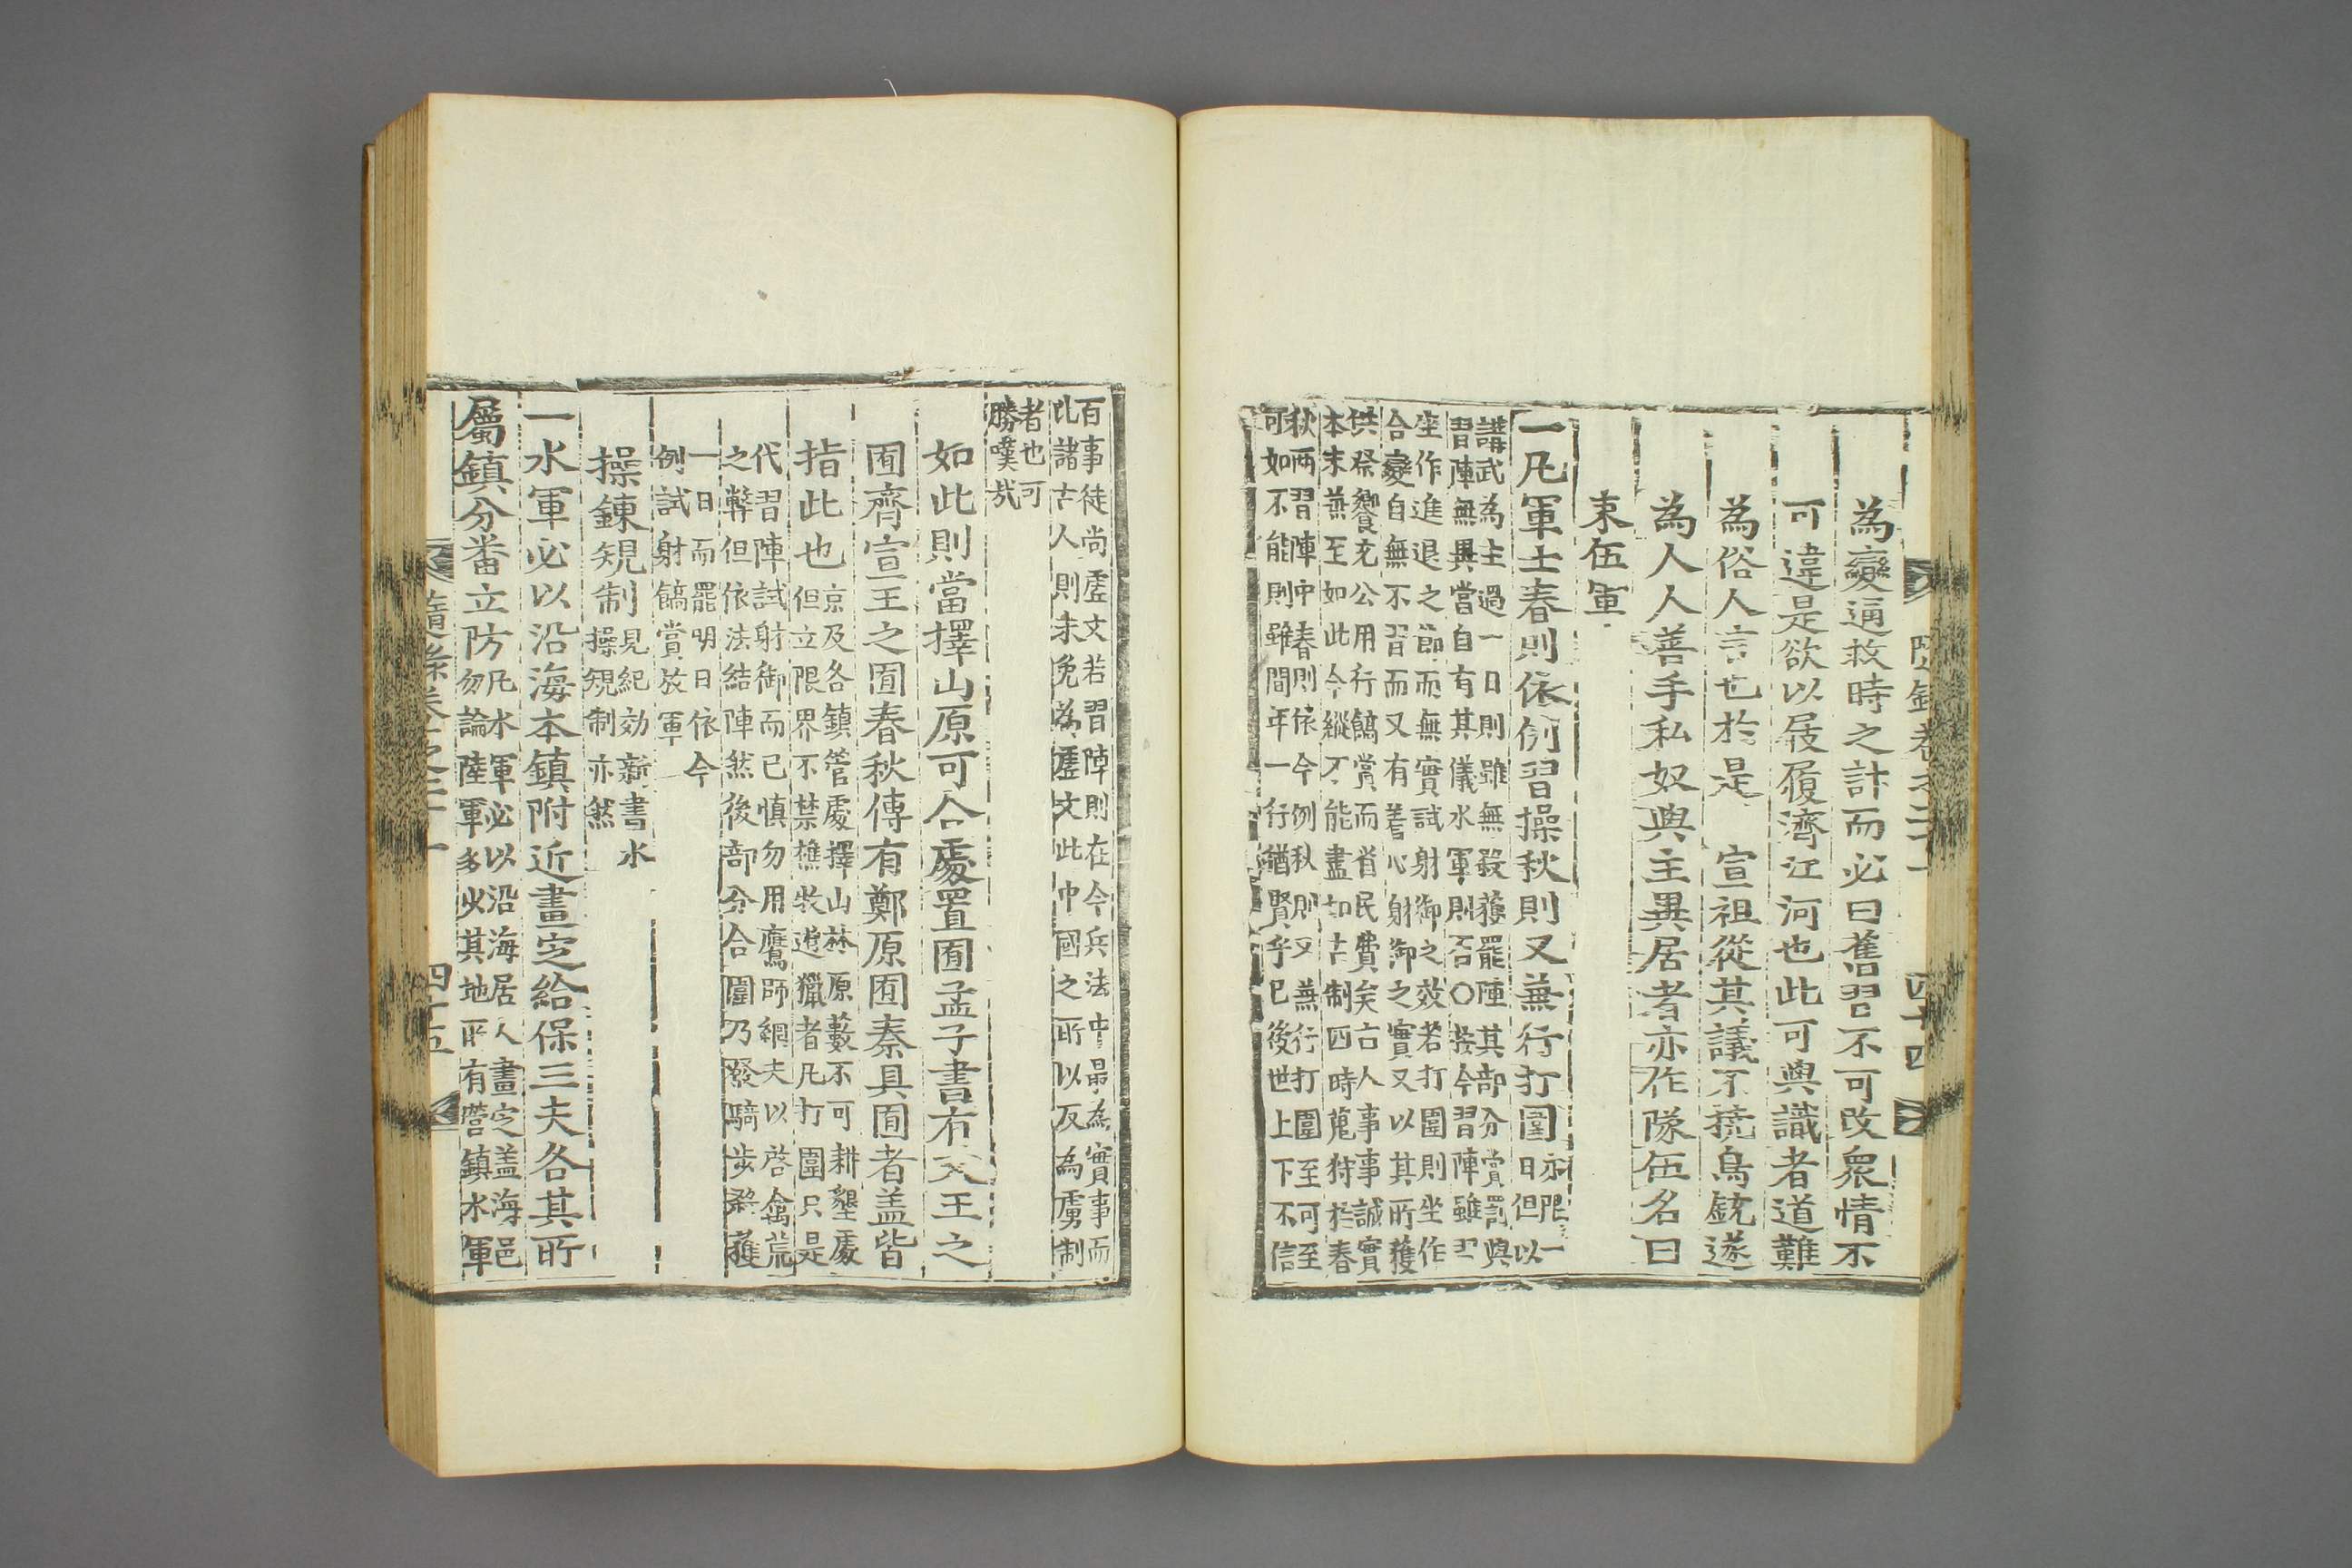 為變通救時之計而必曰舊習不可改衆情不
可違是欲以屐履濟江河也此可與識者道難
為俗人言也於是 宣祖從其議不撓鳥銃遂
為人人善手私奴與主異居者亦作隊伍名曰
束伍軍
一凡軍士春則依例習操秋則又兼行打圍亦限一日但以
講武為主過一日則雖無殺獲罷陣其部分賞罰與
習陣無異當自有其儀水軍則否○按今習陣雖習
坐作進退之節而無實試射御之效若打圍則坐作
合變自無不習而又有著心射御之實又以其所獲
供祭饗充公用行餉賞而省民費矣古人事事誠實
本末兼至如此今縱不能盡如古制四時蒐狩於春
秋兩習陣中春則依今例秋則又兼行打圍至可至
可如不能則雖間年一行猶賢乎已後世上下不信
隨錄卷之二十一 四十四
百事徒尚虛文若習陣則在今兵法中最為實事而
比諸古人則未免為虛文此中國之所以反為虜制
者也可
勝嘆哉
如此則當擇山原可合處置囿孟子書有文王之
囿齊宣王之囿春秋傳有鄭原囿秦具囿者盖皆
指此也京及各鎮管處擇山林原藪不可耕墾處
但立限界不禁樵牧進獵者凡打圍只是
代習陣試射御而已慎勿用鷹師網夫以啓禽荒
之弊但依法結陣然後部分合圍乃發騎步殺獲
一日而罷明日依今
例試射餉賞放軍
操鍊規制見紀効新書水
操規制亦然
一水軍必以沿海本鎮附近畫定給保三夫各其所
屬鎮分番立防凡水軍必以沿海居人畫定盖海邑
勿論陸軍多少其地所有營鎮水軍
隨錄卷之二十一 四十五